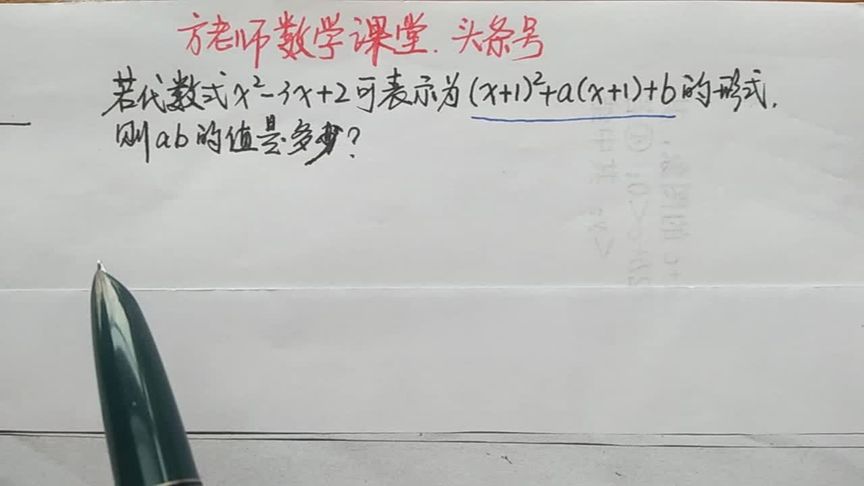 方老师数学课堂.头条号
若代数式x²-3x+2可表示为(x+1)²+a(x+1)+b的形式,
则ab的值是多少?